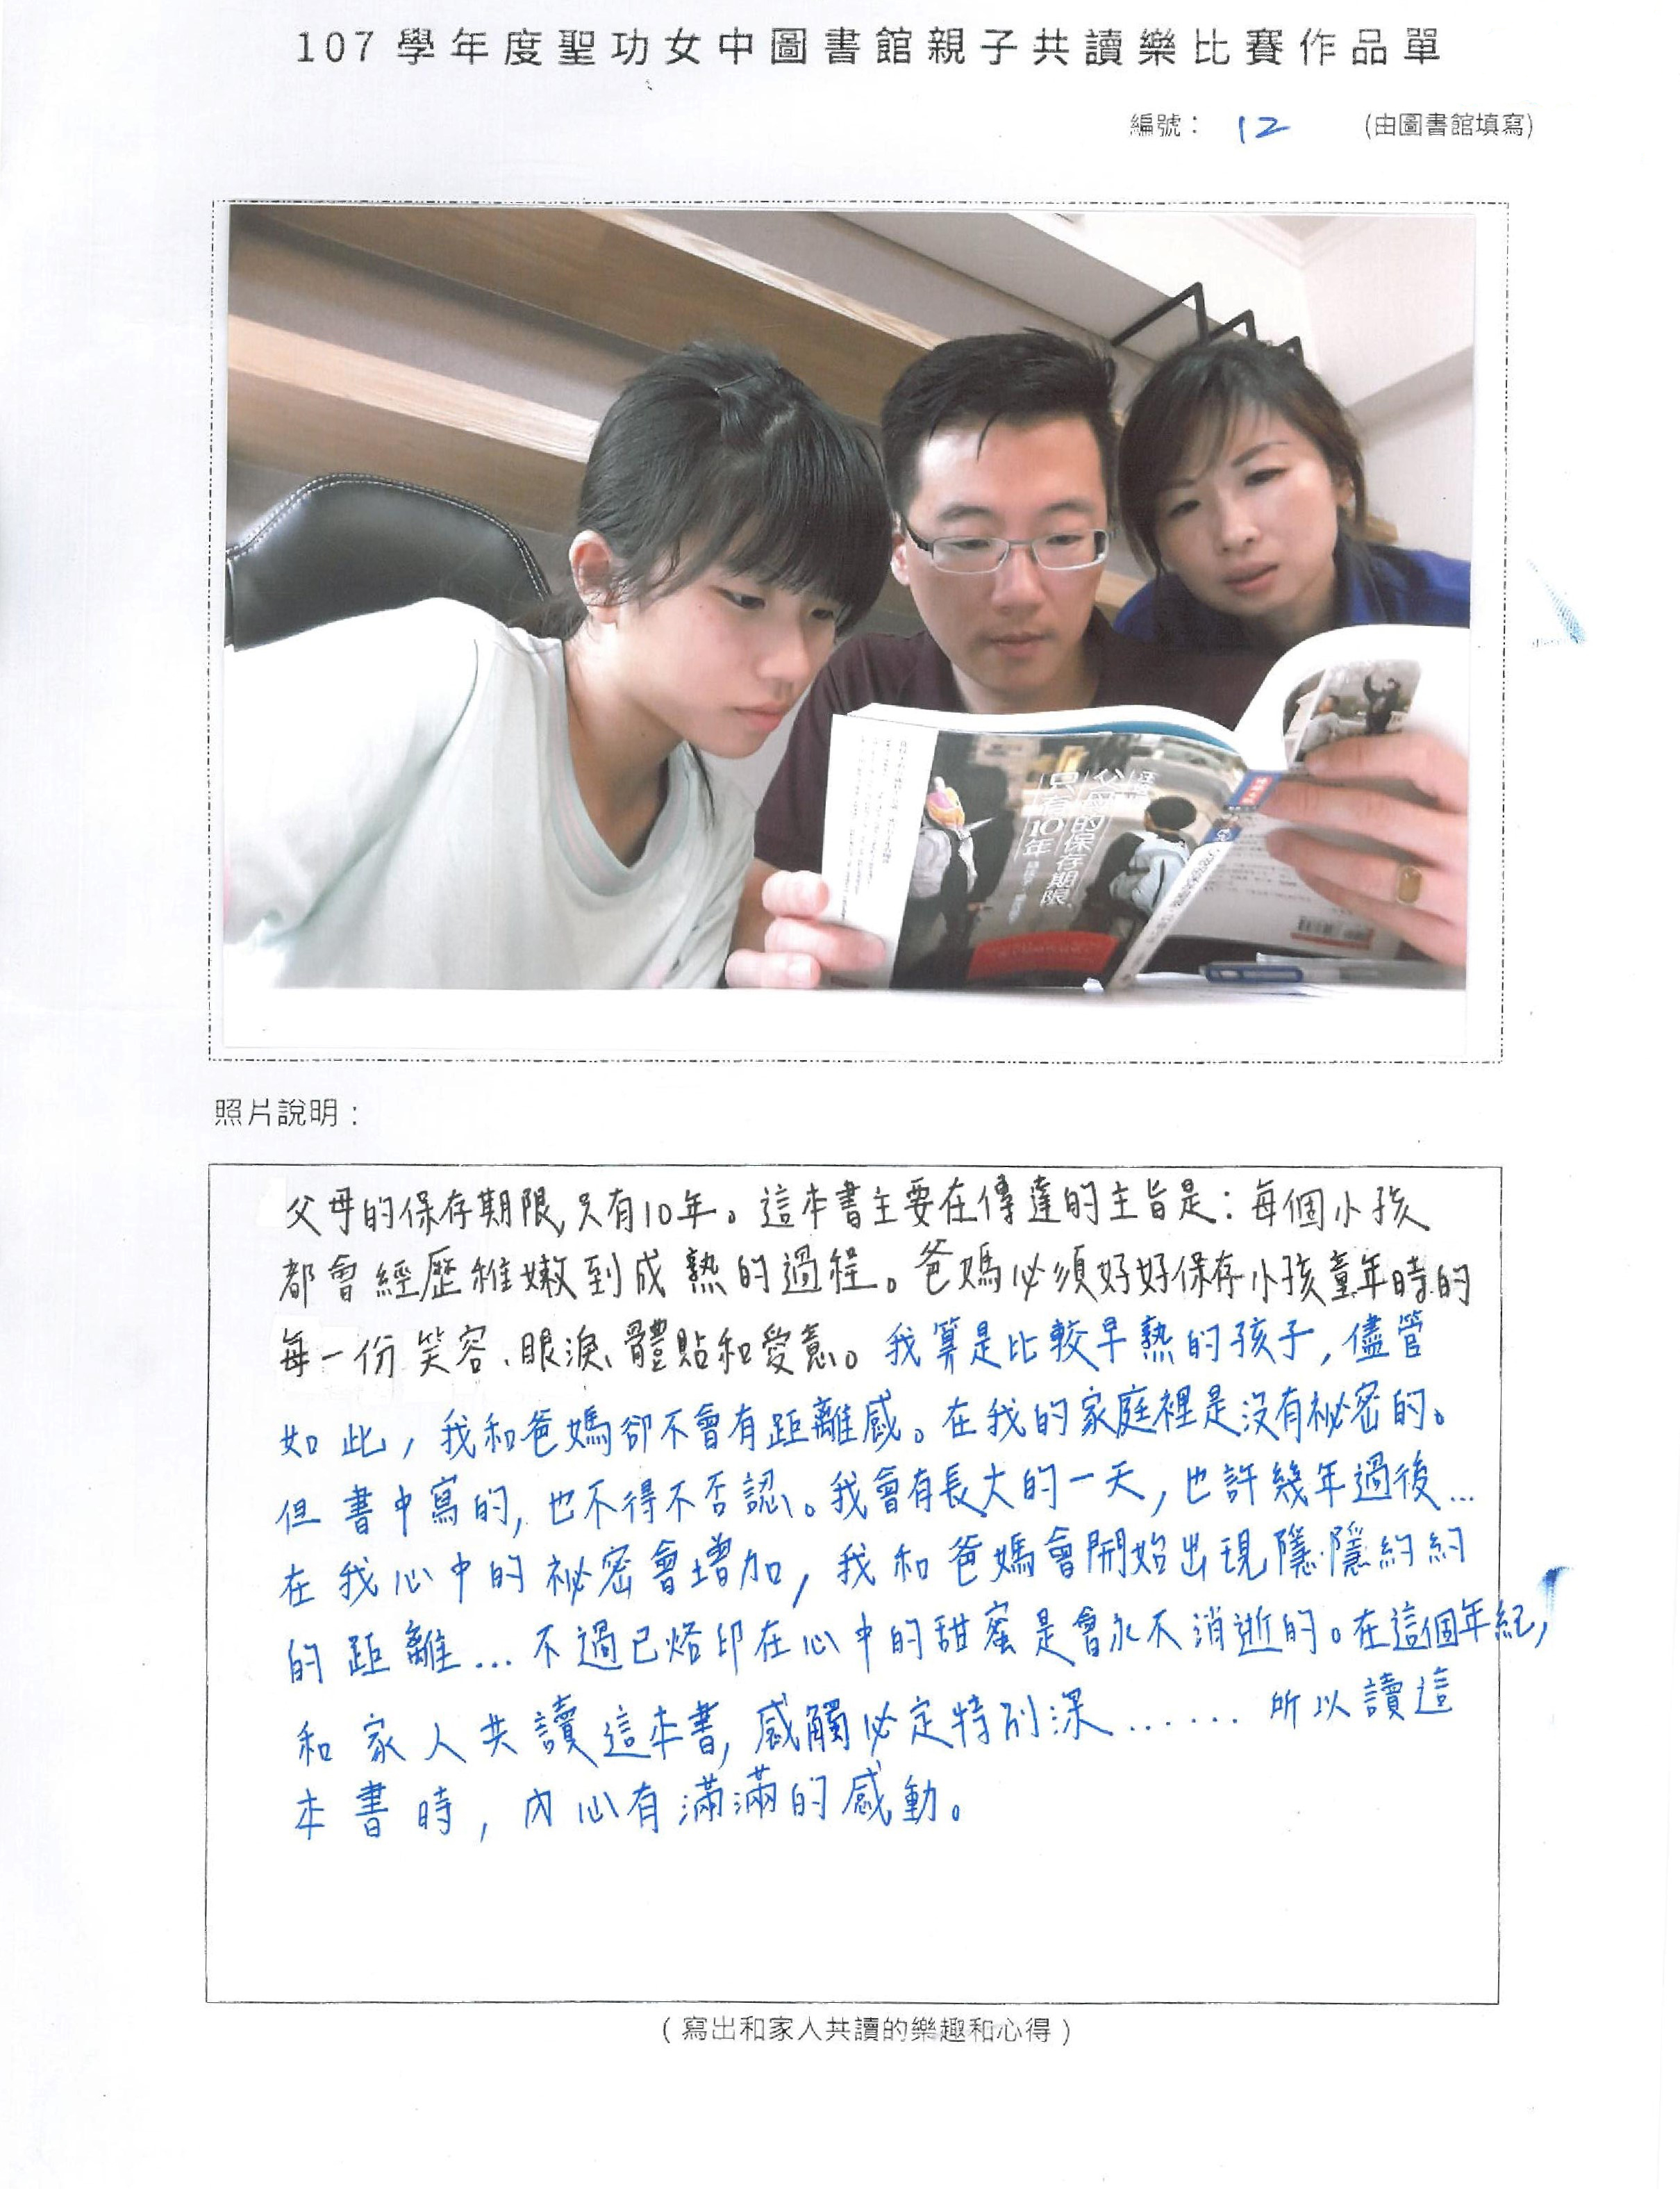 107學年度聖功女中圖書館親子共讀樂比賽作品單
編號： 12 (由圖書館填寫)
父母的保存期限
只有10年
照片說明：
父母的保存期限,只有10年。這本書主要在傳達的主旨是：每個小孩
都會經歷稚嫩到成熟的過程。爸媽必須好好保存小孩童年時的
每一份笑容、眼淚、體貼和愛意。我算是比較早熟的孩子,儘管
如此,我和爸媽卻不會有距離感。在我的家庭裡是沒有祕密的。
但書中寫的,也不得不否認。我會有長大的一天,也許幾年過後...
在我心中的祕密會增加,我和爸媽會開始出現隱隱約約
的距離...不過已烙印在心中的甜蜜是會永不消逝的。在這個年紀,
和家人共讀這本書,感觸必定特別深......所以讀這
本書時,內心有滿滿的感動。
(寫出和家人共讀的樂趣和心得)